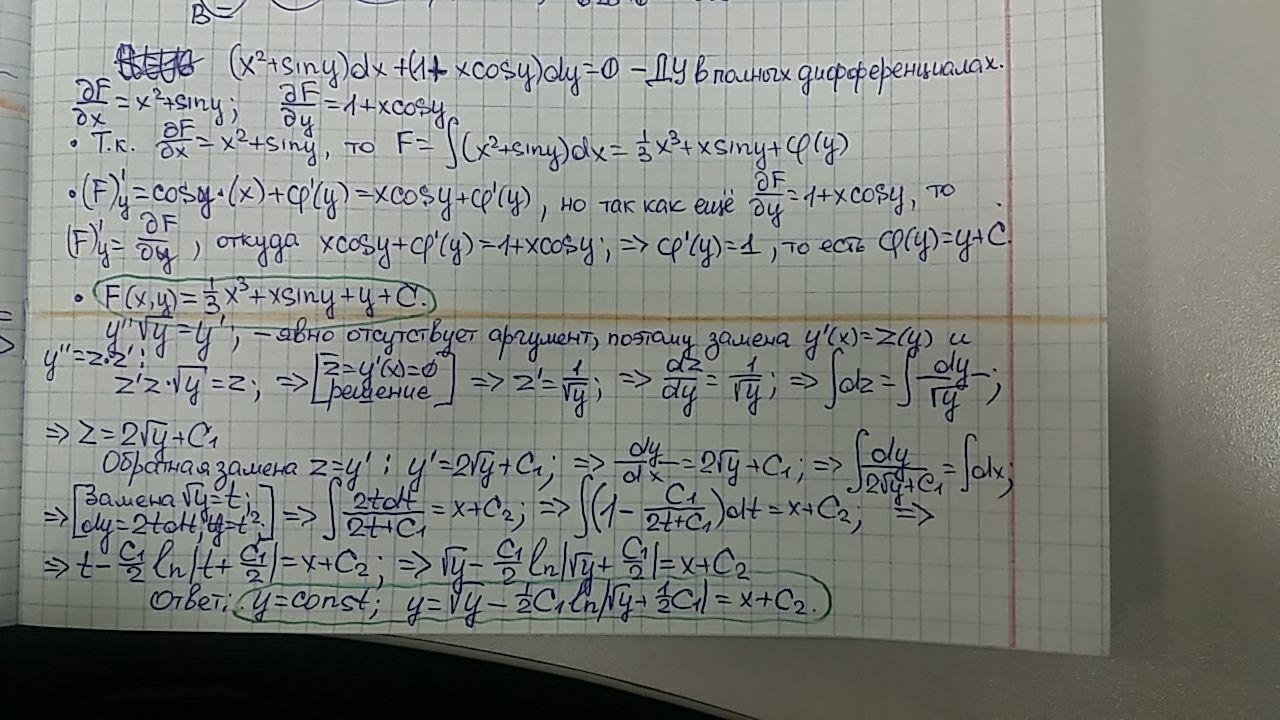 B=
(x²+siny)dx+(1+xcosy)dy=0 – ДУ в полных дифференциалах.
∂F/∂x=x²+siny; ∂F/∂y=1+xcosy
• Т.к. ∂F/∂x=x²+siny, то F=∫(x²+siny)dx=⅓x³+xsiny+φ(y)
• (F)'y=cosy·(x)+φ'(y)=xcosy+φ'(y), но так как ещё ∂F/∂y=1+xcosy, то
(F)'y=∂F/∂y, откуда xcosy+φ'(y)=1+xcosy; ⇒ φ'(y)=1, то есть φ(y)=y+C.
• F(x,y)=⅓x³+xsiny+y+C.
y''√y=y'; – явно отсутствует аргумент, поэтому замена y'(x)=z(y) и
y''=z·z':
z'z·√y=z; ⇒ [z=y'(x)=0 решение] ⇒ z'=1/√y; ⇒ dz/dy=1/√y; ⇒ ∫dz=∫dy/√y;
⇒ z=2√y+C₁
Обратная замена z=y': y'=2√y+C₁; ⇒ dy/dx=2√y+C₁; ⇒ ∫dy/(2√y+C₁)=∫dx;
⇒ [Замена √y=t; dy=2tdt, y=t².] ⇒ ∫2tdt/(2t+C₁)=x+C₂; ⇒ ∫(1–C₁/(2t+C₁))dt=x+C₂; ⇒
⇒ t–C₁/2 ln|t+C₁/2|=x+C₂; ⇒ √y–C₁/2 ln|√y+C₁/2|=x+C₂
Ответ: y=const; y=√y–½C₁ln|√y+½C₁|=x+C₂.